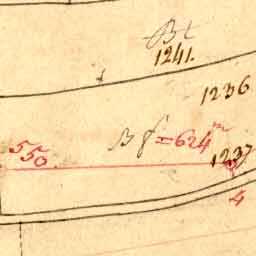 Bt
1241.
1236
B f = 624 m
550
1237
4